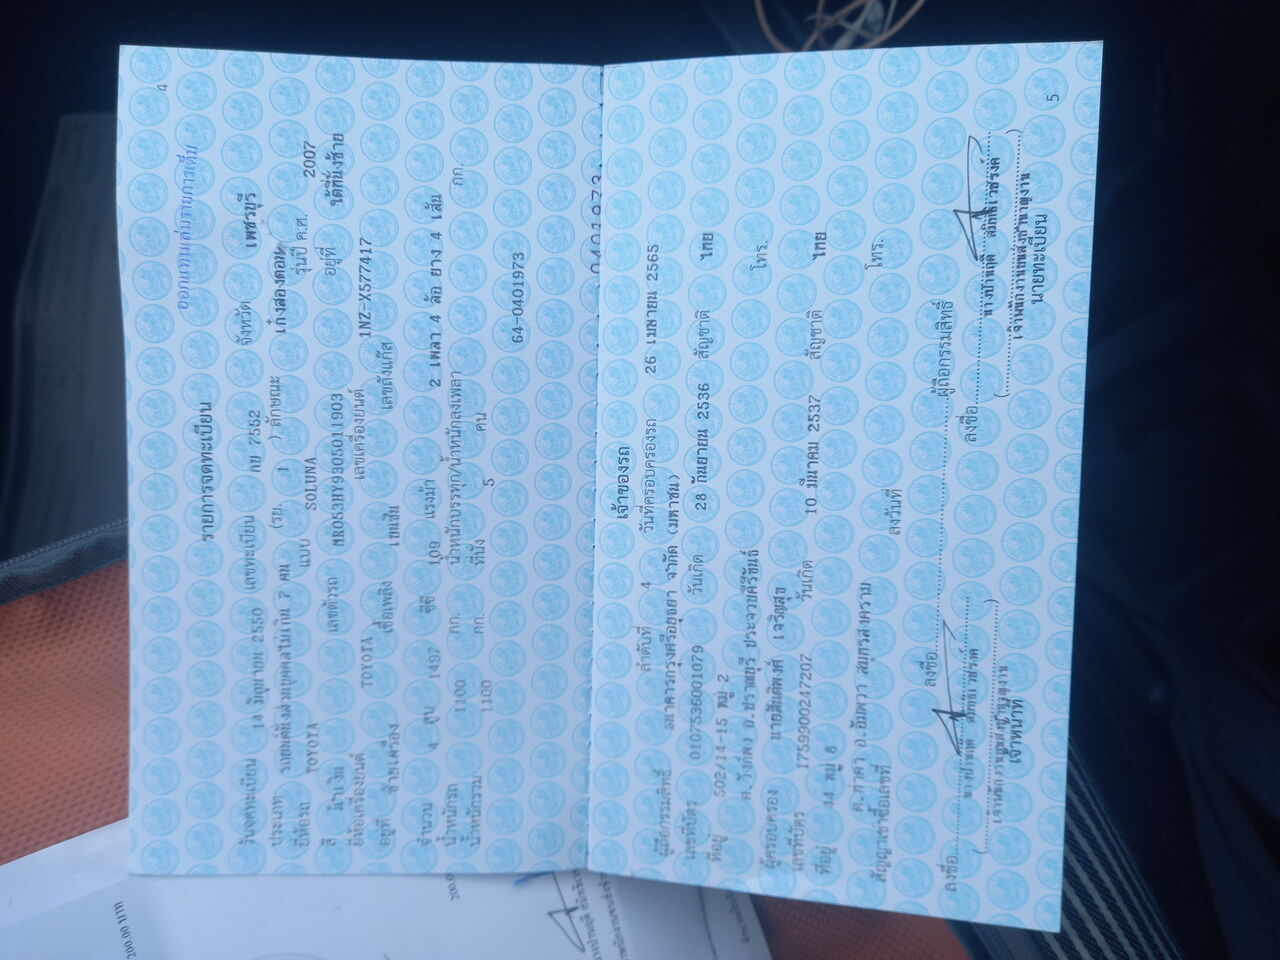 4
ออกแทนเล่มรายการเดิม
รายการจดทะเบียน
วันจดทะเบียน 14 มิถุนายน 2550 เลขทะเบียน กข 7552 จังหวัด เพชรบุรี
ประเภท รถยนต์นั่งส่วนบุคคลไม่เกิน 7 คน (รย. 1 ) ลักษณะ เก๋งสองตอน
ยี่ห้อรถ TOYOTA แบบ SOLUNA รุ่นปี ค.ศ. 2007
สี น้ำเงิน เลขตัวรถ MR053HY9305011903 อยู่ที่ ใต้ที่นั่งซ้าย
ยี่ห้อเครื่องยนต์ TOYOTA เลขเครื่องยนต์ 1NZ-X577417
อยู่ที่ ซ้ายเครื่อง เชื้อเพลิง เบนซิน เลขถังแก๊ส
จำนวน 4 สูบ 1497 ซีซี 109 แรงม้า 2 เพลา 4 ล้อ ยาง 4 เส้น
น้ำหนักรถ 1100 กก. น้ำหนักบรรทุก/น้ำหนักลงเพลา กก.
น้ำหนักรวม 1100 กก. ที่นั่ง 5 คน
64-0401973
เจ้าของรถ
ลำดับที่ 4 วันที่ครอบครองรถ 26 เมษายน 2565
ผู้ถือกรรมสิทธิ์ ธนาคารกรุงศรีอยุธยา จำกัด (มหาชน)
เลขที่บัตร 0107536001079 วันเกิด 28 กันยายน 2536 สัญชาติ ไทย
ที่อยู่ 502/14-15 หมู่ 2
ต.วังก์พง อ.ปราณบุรี ประจวบคีรีขันธ์ โทร.
ผู้ครอบครอง นายสันติพงศ์ เจริญสุข
เลขที่บัตร 1759900247207 วันเกิด 10 มีนาคม 2537 สัญชาติ ไทย
ที่อยู่ 44 หมู่ 8
ต.ท่าคา อ.อัมพวา สมุทรสงคราม โทร.
สัญญาเช่าซื้อเลขที่ ลงวันที่
ลงชื่อ ผู้ถือกรรมสิทธิ์
ลงชื่อ ลงชื่อ
เจ้าหน้าที่ นายทะเบียน
5
200.00 บาท